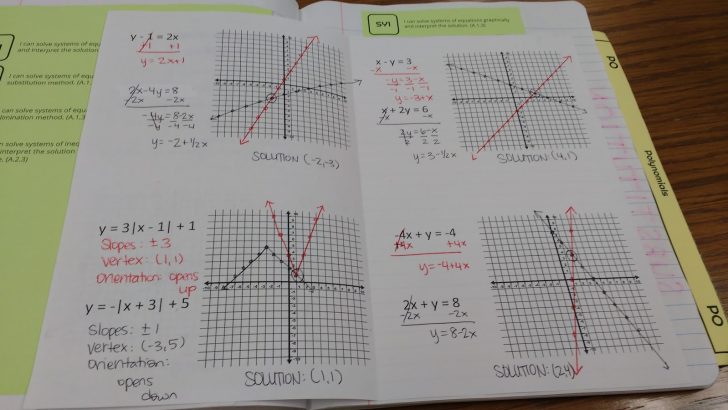 SY1
I can solve systems of equations graphically
and interpret the solution. (A.1.3)
I can solve systems of equ
and interpret the solution
I can solve systems of equa
substitution method. (A.1.
can solve systems of equa
limination method. (A.1.3
can solve systems of ineq
interpret the solution
. (A.2.3)
y - 1 = 2x
+1 +1
y = 2x+1
2x-4y = 8
-2x -2x
-4y = 8-2x
-4 -4 -4
y = -2 + 1/2x
SOLUTION (-2,-3)
x - y = 3
-x -x
-y = 3-x
-1 -1 -1
y = -3+x
x + 2y = 6
-x -x
2y = 6-x
2 2 2
y = 3-1/2x
SOLUTION (4,1)
y = 3|x - 1| + 1
Slopes: ± 3
vertex: (1,1)
Orientation: opens
up
y = -|x + 3| + 5
Slopes: ± 1
vertex: (-3,5)
Orientation:
opens
down
SOLUTION: (1,1)
-4x + y = -4
+4x +4x
y = -4+4x
2x + y = 8
-2x -2x
y = 8-2x
SOLUTION: (2,4)
PO
Polynomials
PO